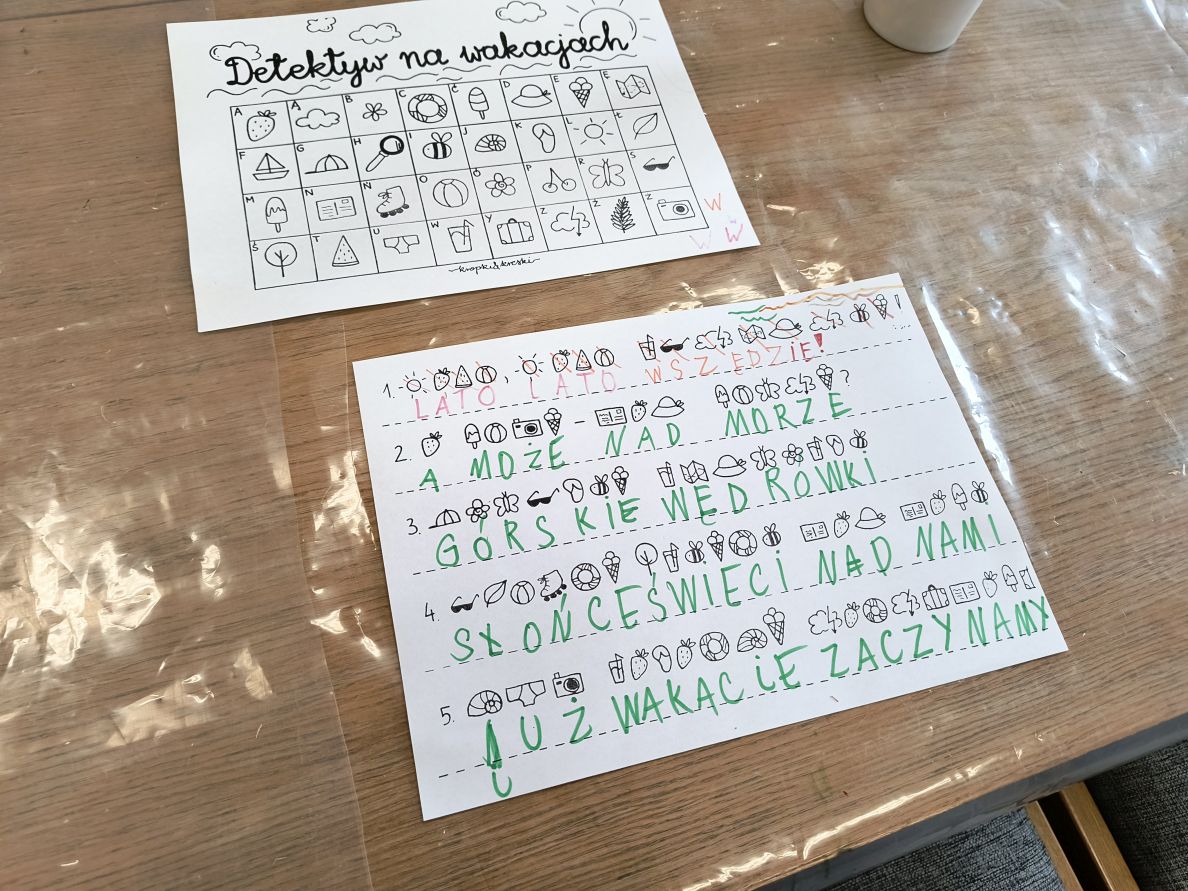 Detektyw na wakacjach
A Ą B C Ć D E Ę
F G H I J K L Ł
M N Ń O Ó P R S
Ś T U W Y Z Ź Ż
W
W W
kropki&kreski
1. , !
LATO LATO WSZĘDZiE!
2. - ?
A MOŻE NAD MORZE
3.
GÓRSKiE WĘDROWKi
4.
SŁOŃCEŚWIECI NAD NAMI
5.
JUŻ WAKACiE ZACZYNAMY